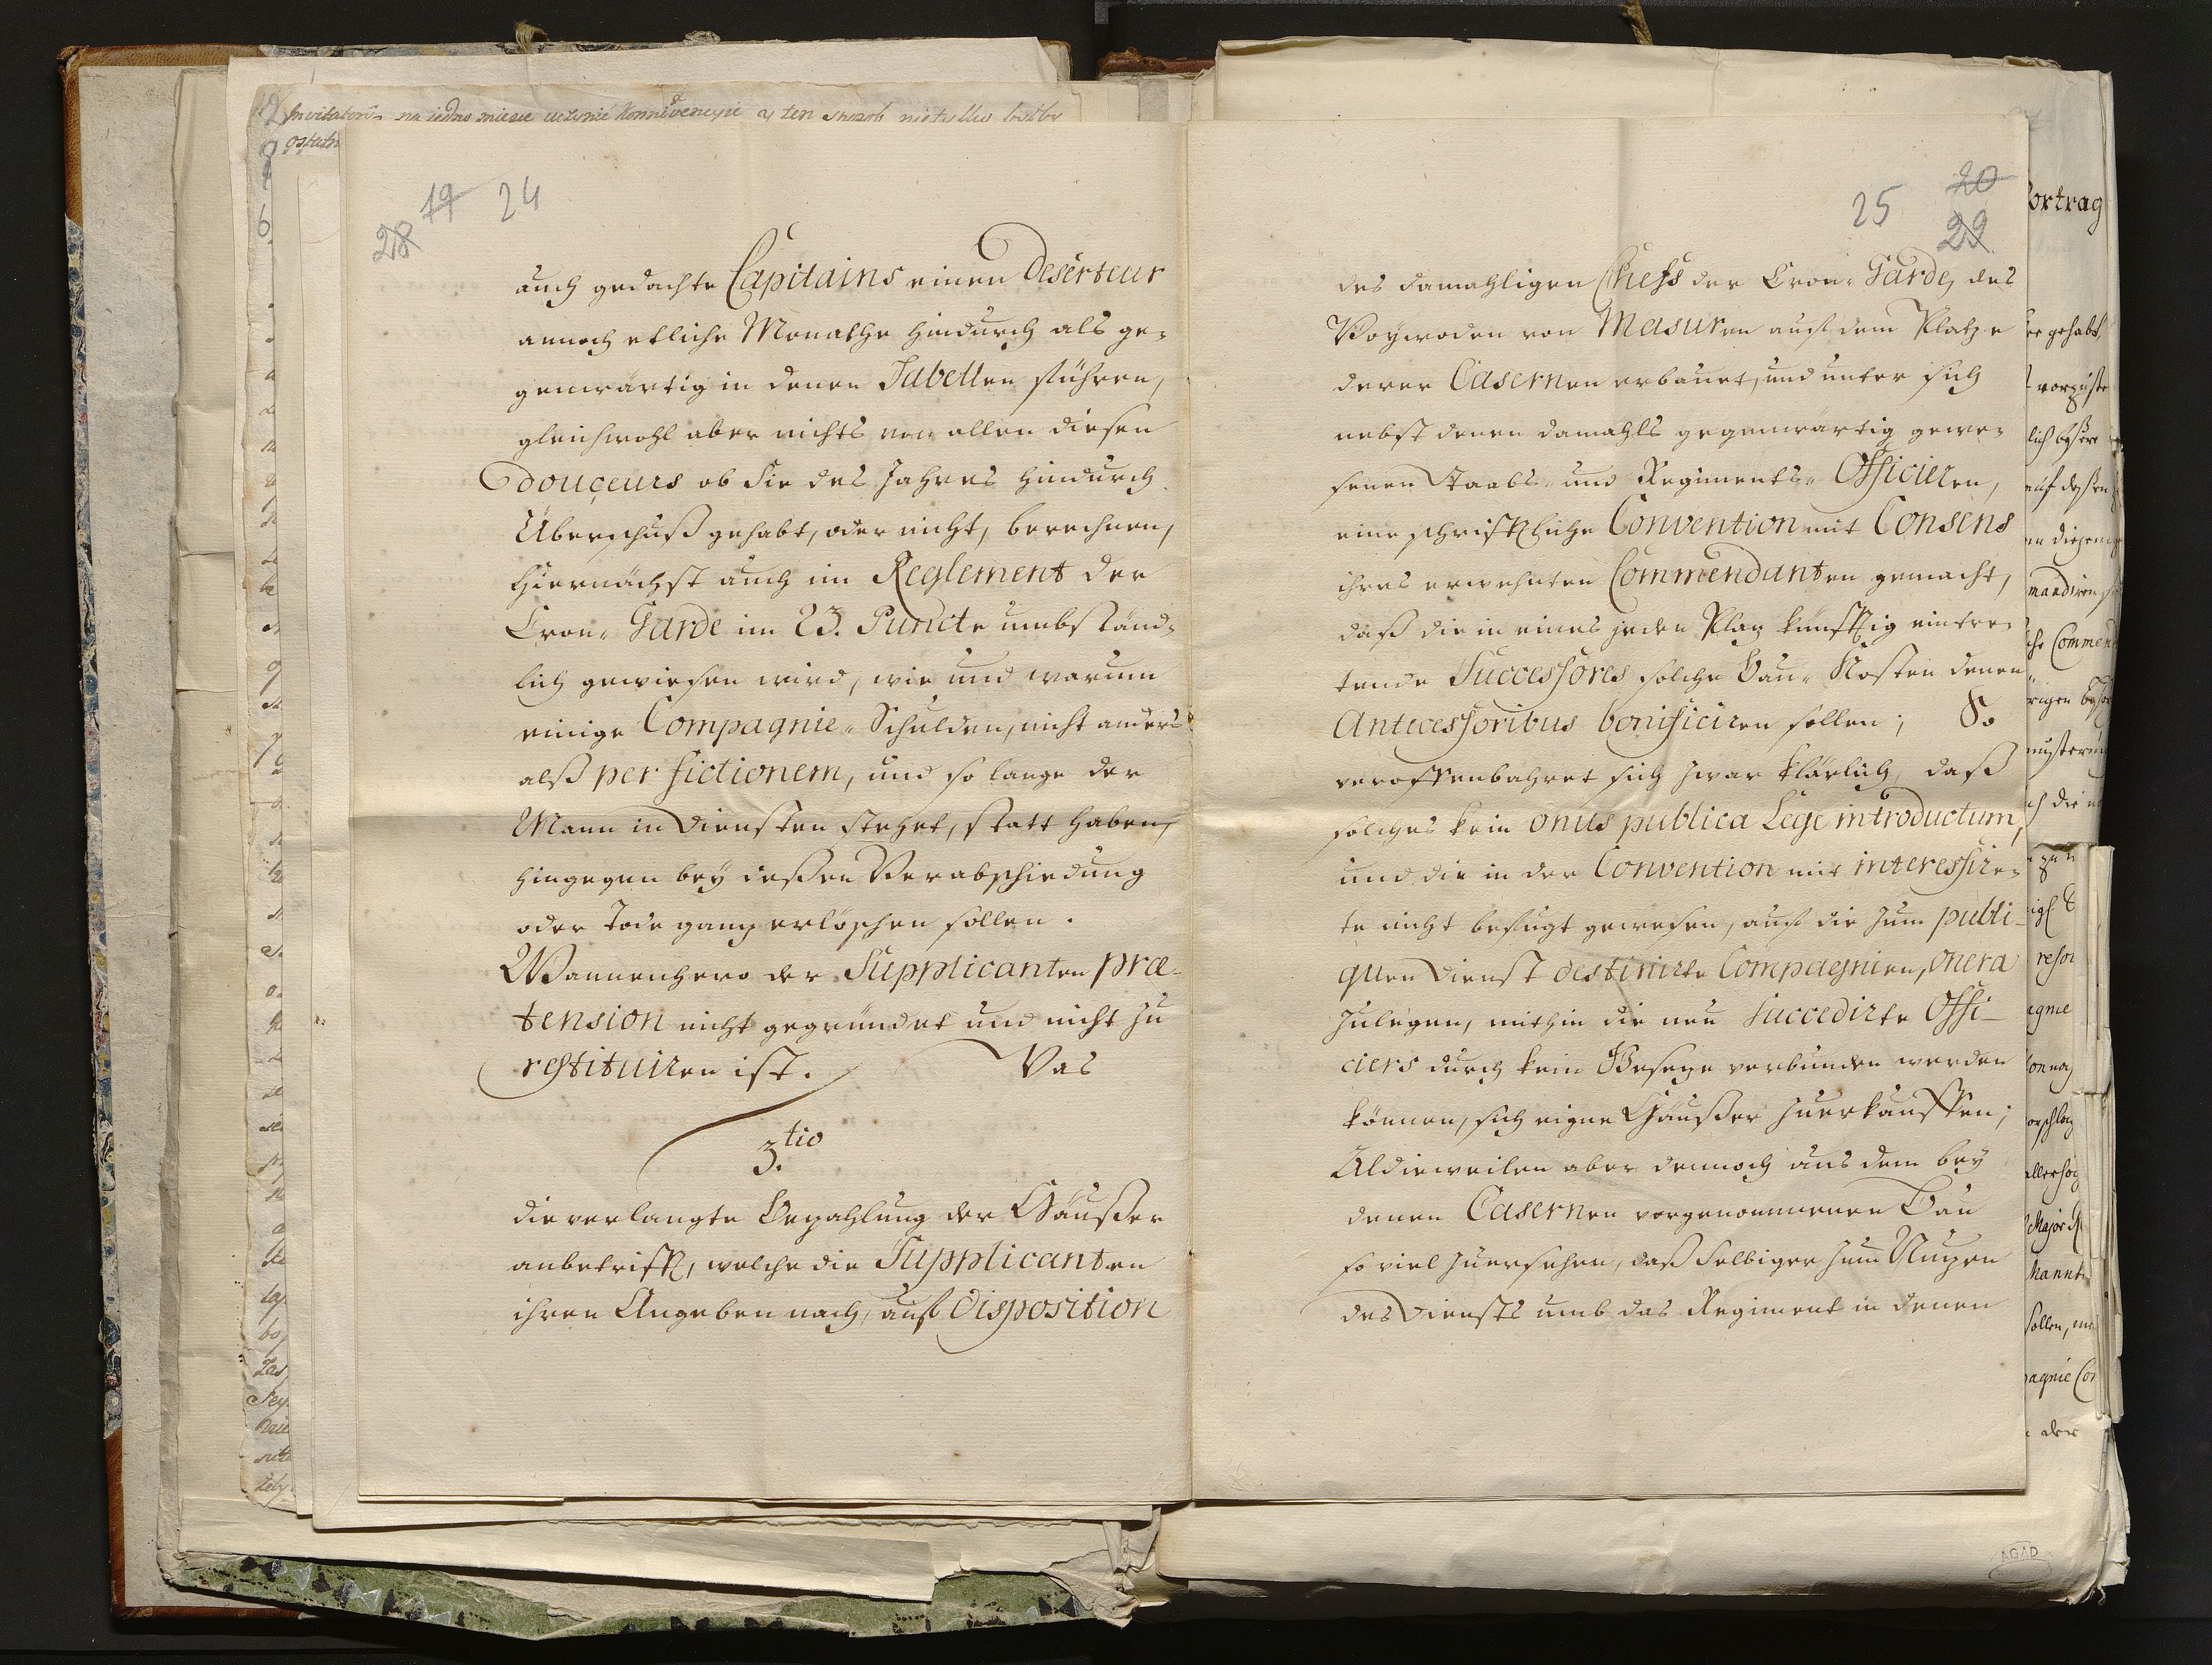 19 24
28
auch gedachte Capitains einen Deserteur
annoch etliche Monathe hindurch als ge-
genwärtig in denen Tabellen führen,
gleichwohl aber nichts von allen diesen
douçeurs ob sie des Jahres hindurch
Überschuß gehabt, oder nicht, berechnen,
hiernächst auch im Reglement der
Cron-Garde im 23. Puncte umbständ-
lich gewiesen wird, wie und warum
einige Compagnie-Schulden, nicht anders
alß per fictionem, und so lange der
Mann in Diensten stehet, statt haben,
hingegen bey deßen Verabschiedung
oder Tode ganz erlöschen sollen.
Wannenhero der Supplicanten præ-
tension nicht gegründet und nicht zu
restituiren ist. Was
3.tio
die verlangte Bezahlung der Häußer
anbetrifft, welche die Supplicanten
ihren Angeben nach, auf Disposition
25 20
29
des damahligen Chefs der Cron-Garde, des
Woywoden von Masuren auf dem Platze
derer Casernen erbauet, und unter sich
nebst denen damahls gegenwärtig gewe-
senen Staabs- und Regiments-Officiren,
eine schrifftliche Convention mit Consens
ihres erwehnten Commendanten gemacht,
daß die in eines jeden Plaz künfftig eintre-
tende Successores solche Bau-Kosten denen
Antecessoribus bonificiren sollen; So
veroffenbahret sich zwar klärlich, daß
solches kein onus publica Lege introductum,
und die in der Convention mit interessir-
te nicht befugt gewesen, auf die zum publi-
quen Dienst destinirte Compagnien, onera
zulegen, mithin die neu succedirte Offi-
ciers durch kein Geseze verbunden werden
können, sich eigne Häußer zuerkauffen;
Aldieweilen aber dennoch aus dem bey
denen Casernen vorgenommenen Bau
so viel zuersehen, daß selbiger zum Nuzen
des Diensts umb das Regiment in denen
AGAD